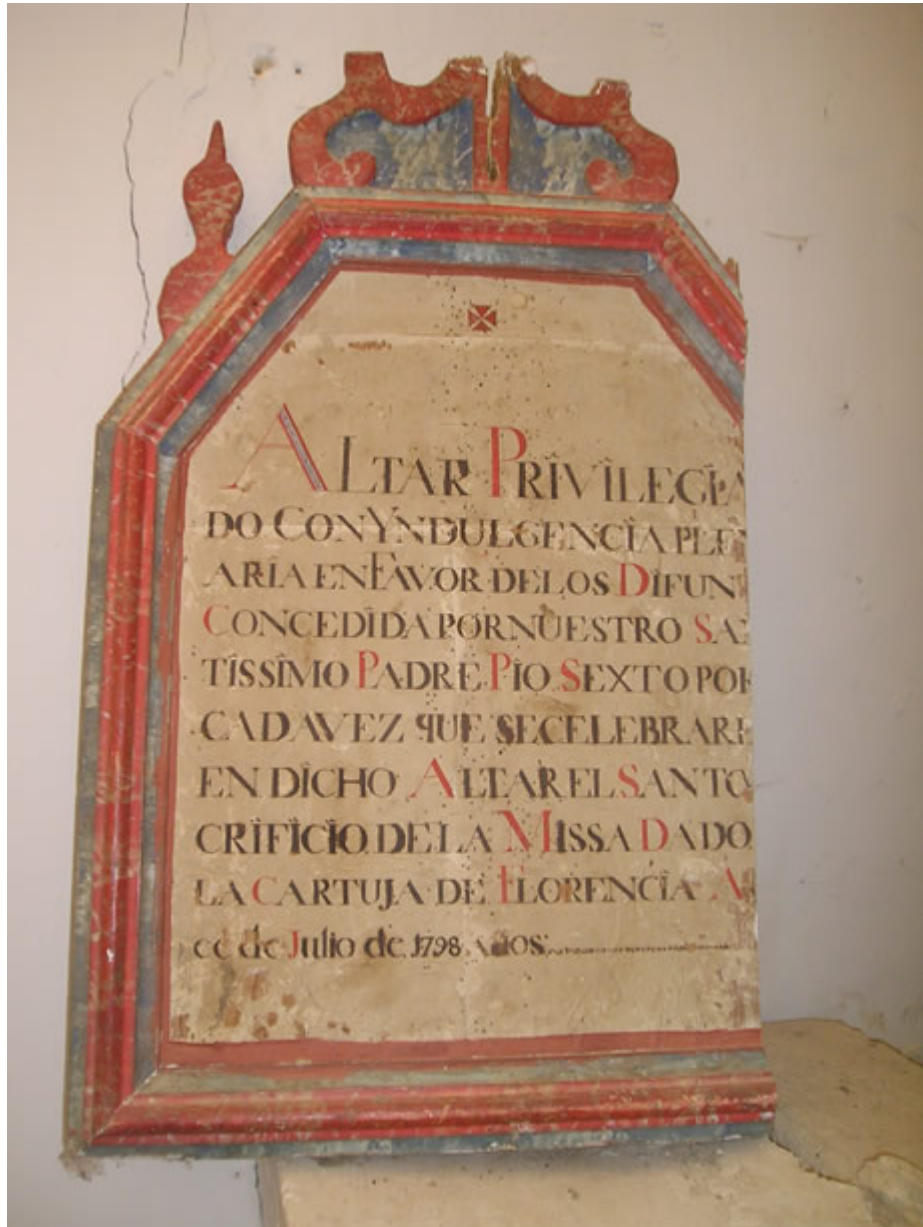 ALTAR PRIVILEGIA
DO CON YNDULGENCIA PLEN
ARIA EN FAVOR DE LOS DIFUN
CONCEDIDA POR NUESTRO SAN
TISSIMO PADRE PIO SEXTO POR
CADA VEZ QUE SE CELEBRARE
EN DICHO ALTAR EL SANTO
CRIFICIO DE LA MISSA DADO
LA CARTUJA DE FLORENCIA A
ce de Julio de 1798 Años